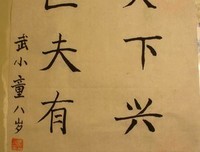 下兴
夫有
武小童八岁